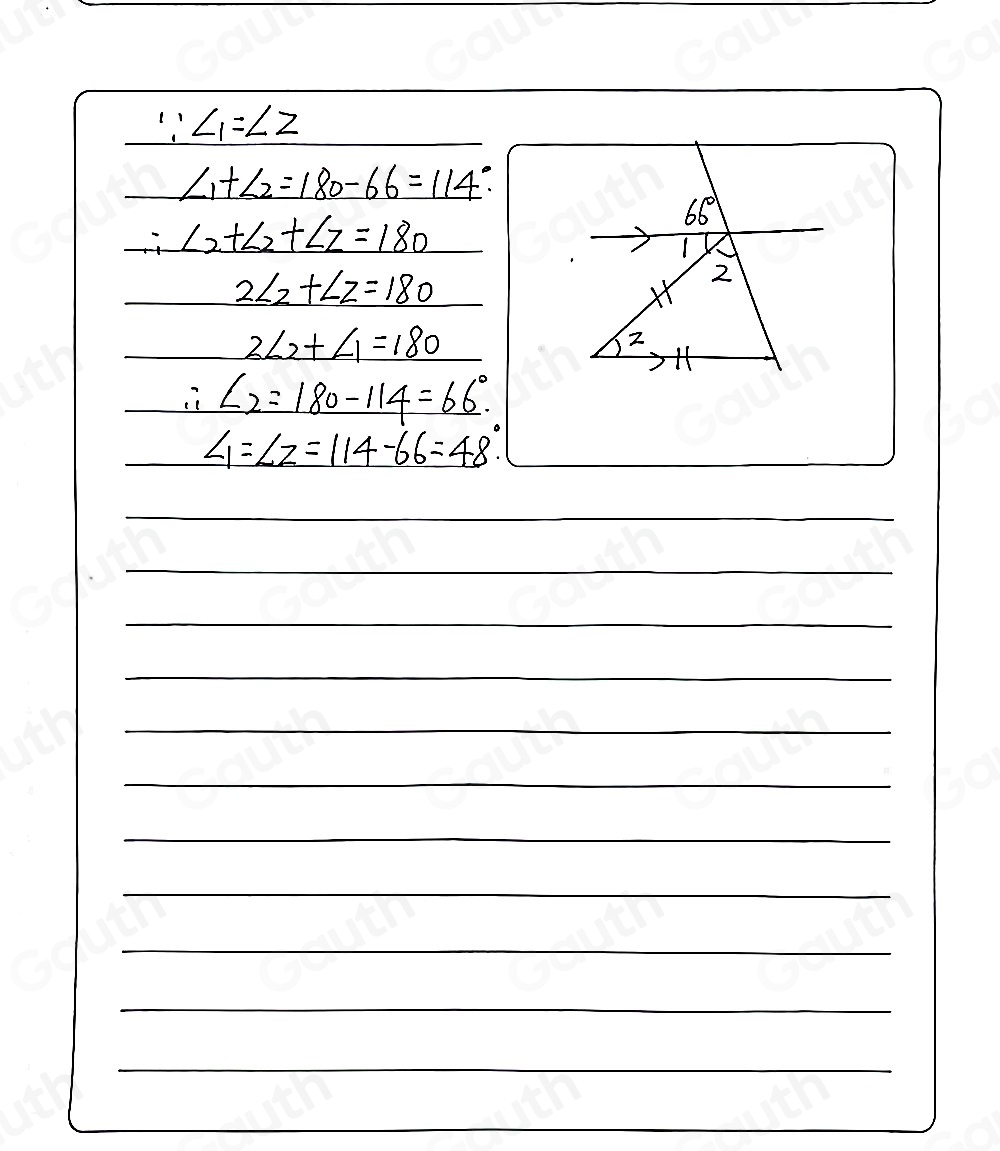 ∵ ∠1=∠z
∠1+∠2=180-66=114°.
∴ ∠2+∠2+∠z=180
2∠2+∠z=180
2∠2+∠1=180
∴ ∠2=180-114=66°.
∠1=∠z=114-66=48°.
66°
1
2
z
Gauth